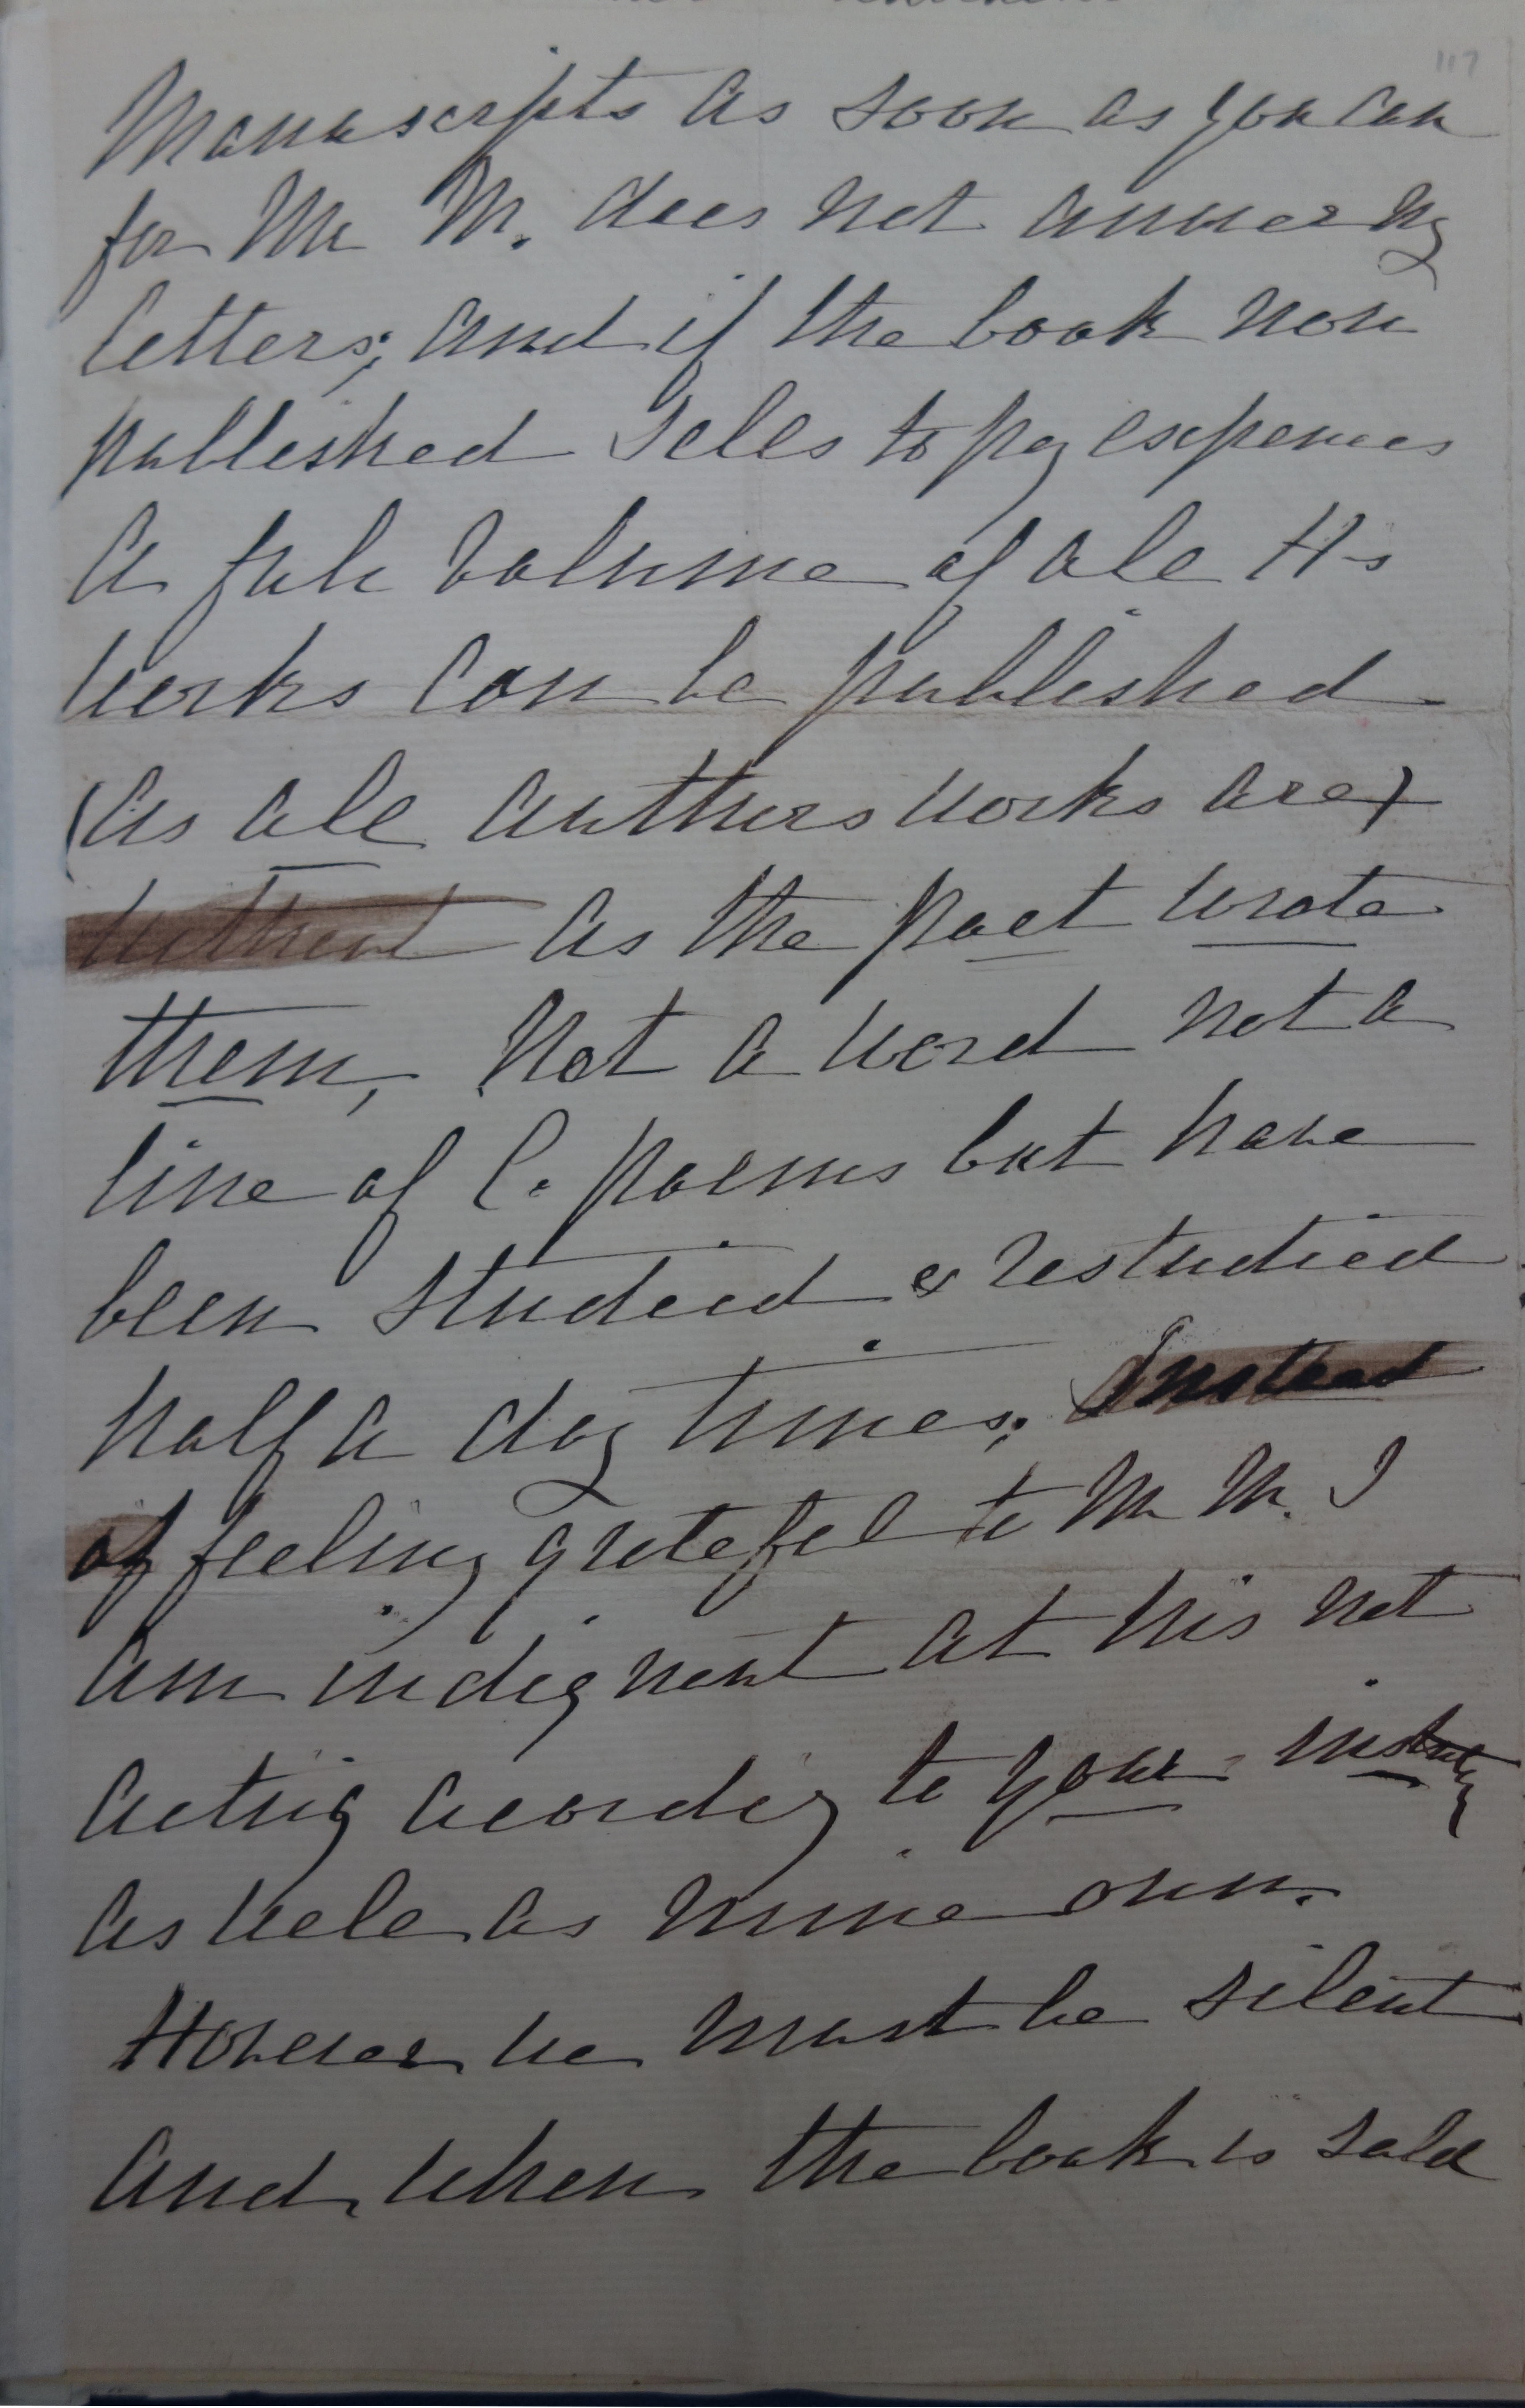 117
Manuscripts as soon as you can
for Mr M. does not answer my
letters; and if the book now
published sells to pay expenses
a full volume of all H's
works can be published
(as all authors works are)
without as the poet wrote
them, Not a word not a
line of C. poems but have
been studied & restudied
half a doz times; Instead
of feeling grateful to Mr M. I
am indignant at his not
acting according to your
as well as mine own.
However we must be silent
and when the book is sold